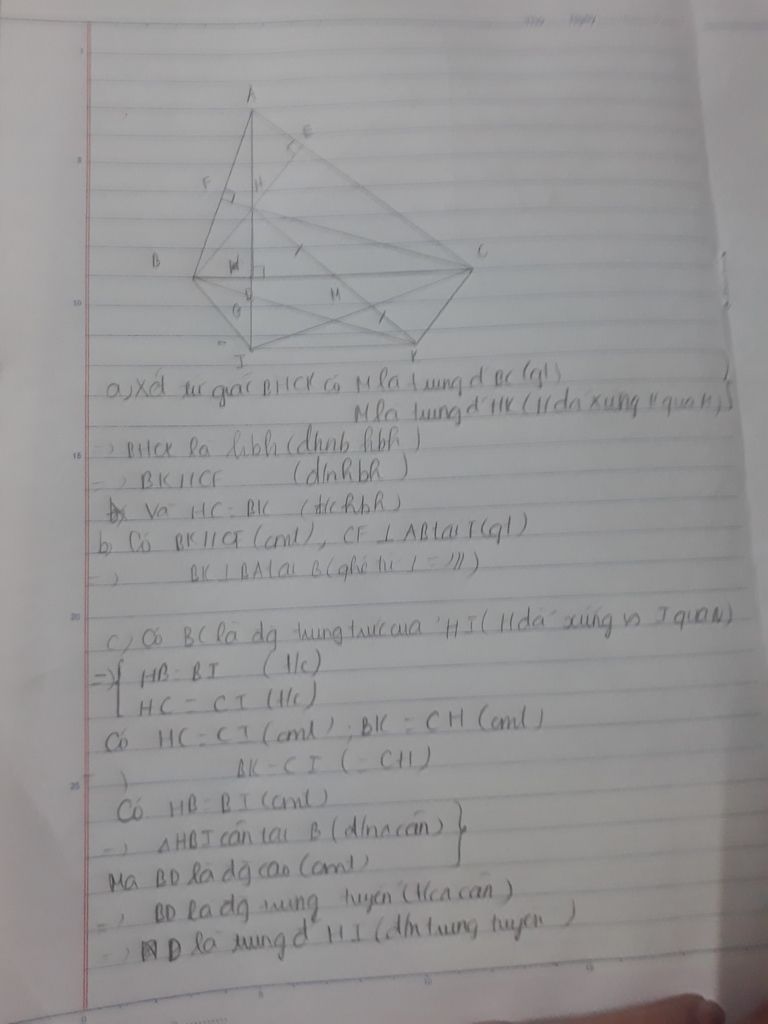 A
E
F
H
B
C
M
D
I
K
a, Xét tứ giác BHCK có M là trung đ BC (gt)
M là trung đ HK (H đx xứng K qua M)
=> BHCK là hbh (dhnb hbh)
=> BK//CF (đ/n hbh)
Và HC = BK (t/c hbh)
b, Có BK//CF (cmt), CF ⊥ AB tại F (gt)
=> BK ⊥ BA tại B (ghé từ ⊥ = ///)
c, Có BC là đg trung trực của HI (H đx xứng vs I qua
=> { HB = BI (t/c)
HC = CI (t/c)
Có HC = CI (cmt), BK = CH (cmt)
BK = CI (= CH)
Có HB = BI (cmt)
=> △HBI cân tại B (đ/n △ cân)
Mà BD là đg cao (cmt)
=> BD là đg trung tuyến (t/c △ cân)
=> D là trung đ HI (đ/n trung tuyến)